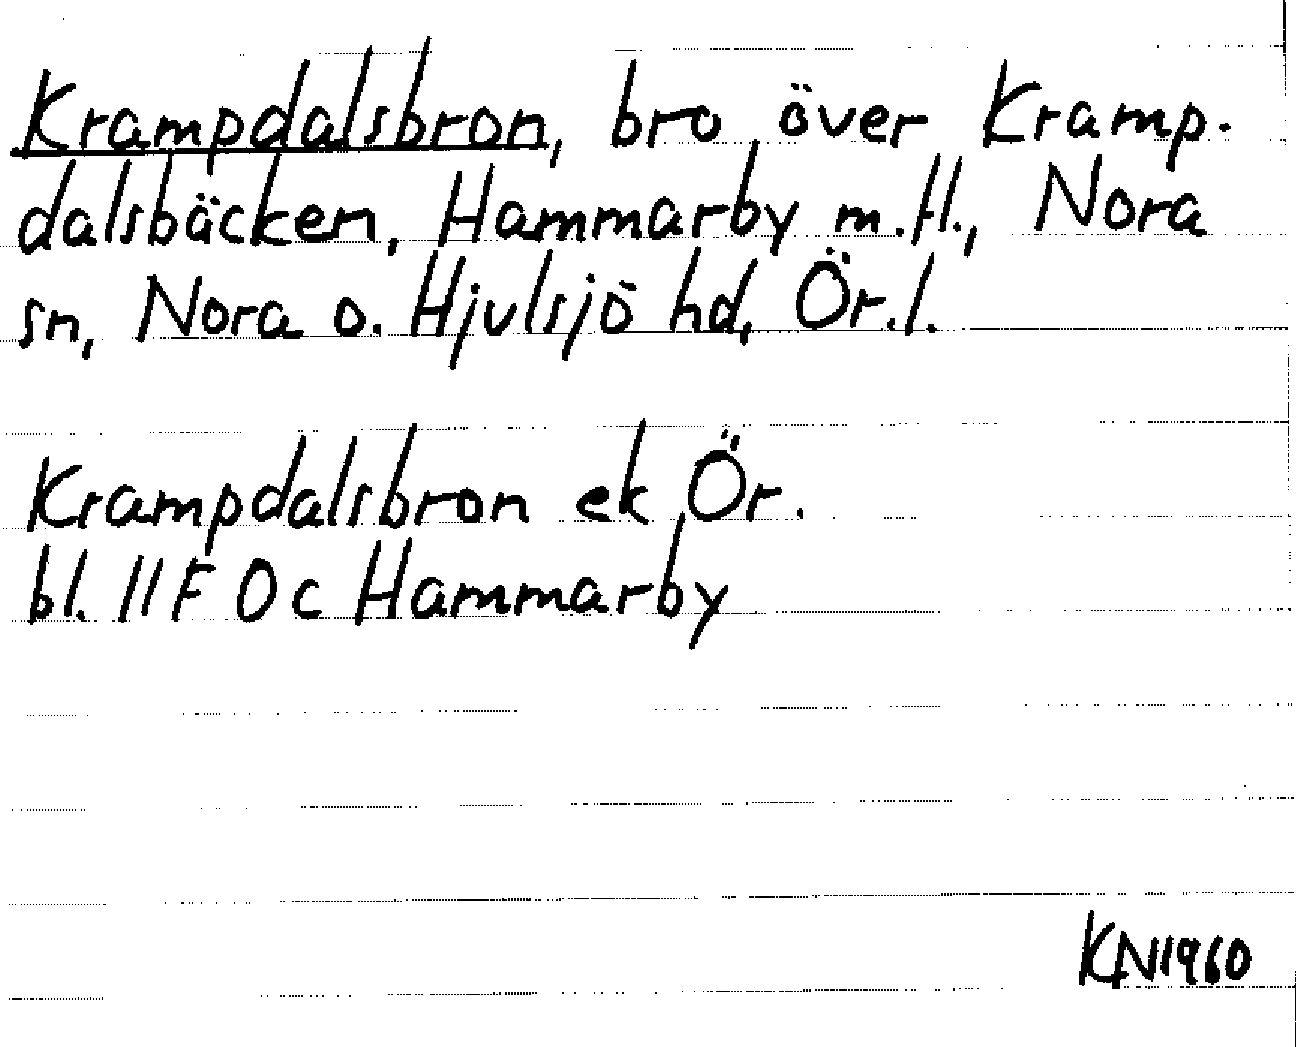 Krampdalsbron, bro över Kramp-
dalsbäcken, Hammarby m.fl., Nora
sn, Nora o. Hjulsjö hd, Ör.l.
Krampdalsbron ek Ör.
bl. 11F 0c Hammarby
KN1960